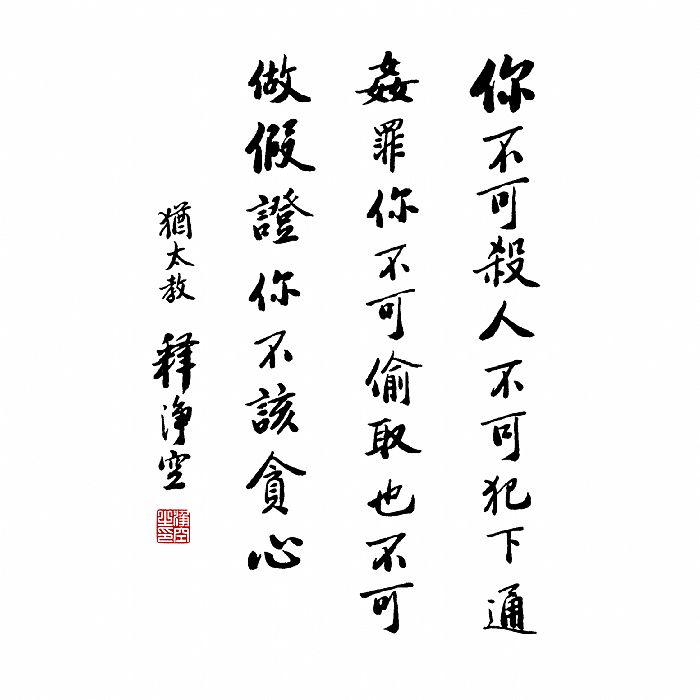 你不可殺人不可犯下通
姦罪你不可偷取也不可
做假證你不該貪心
猶太教 釋淨空